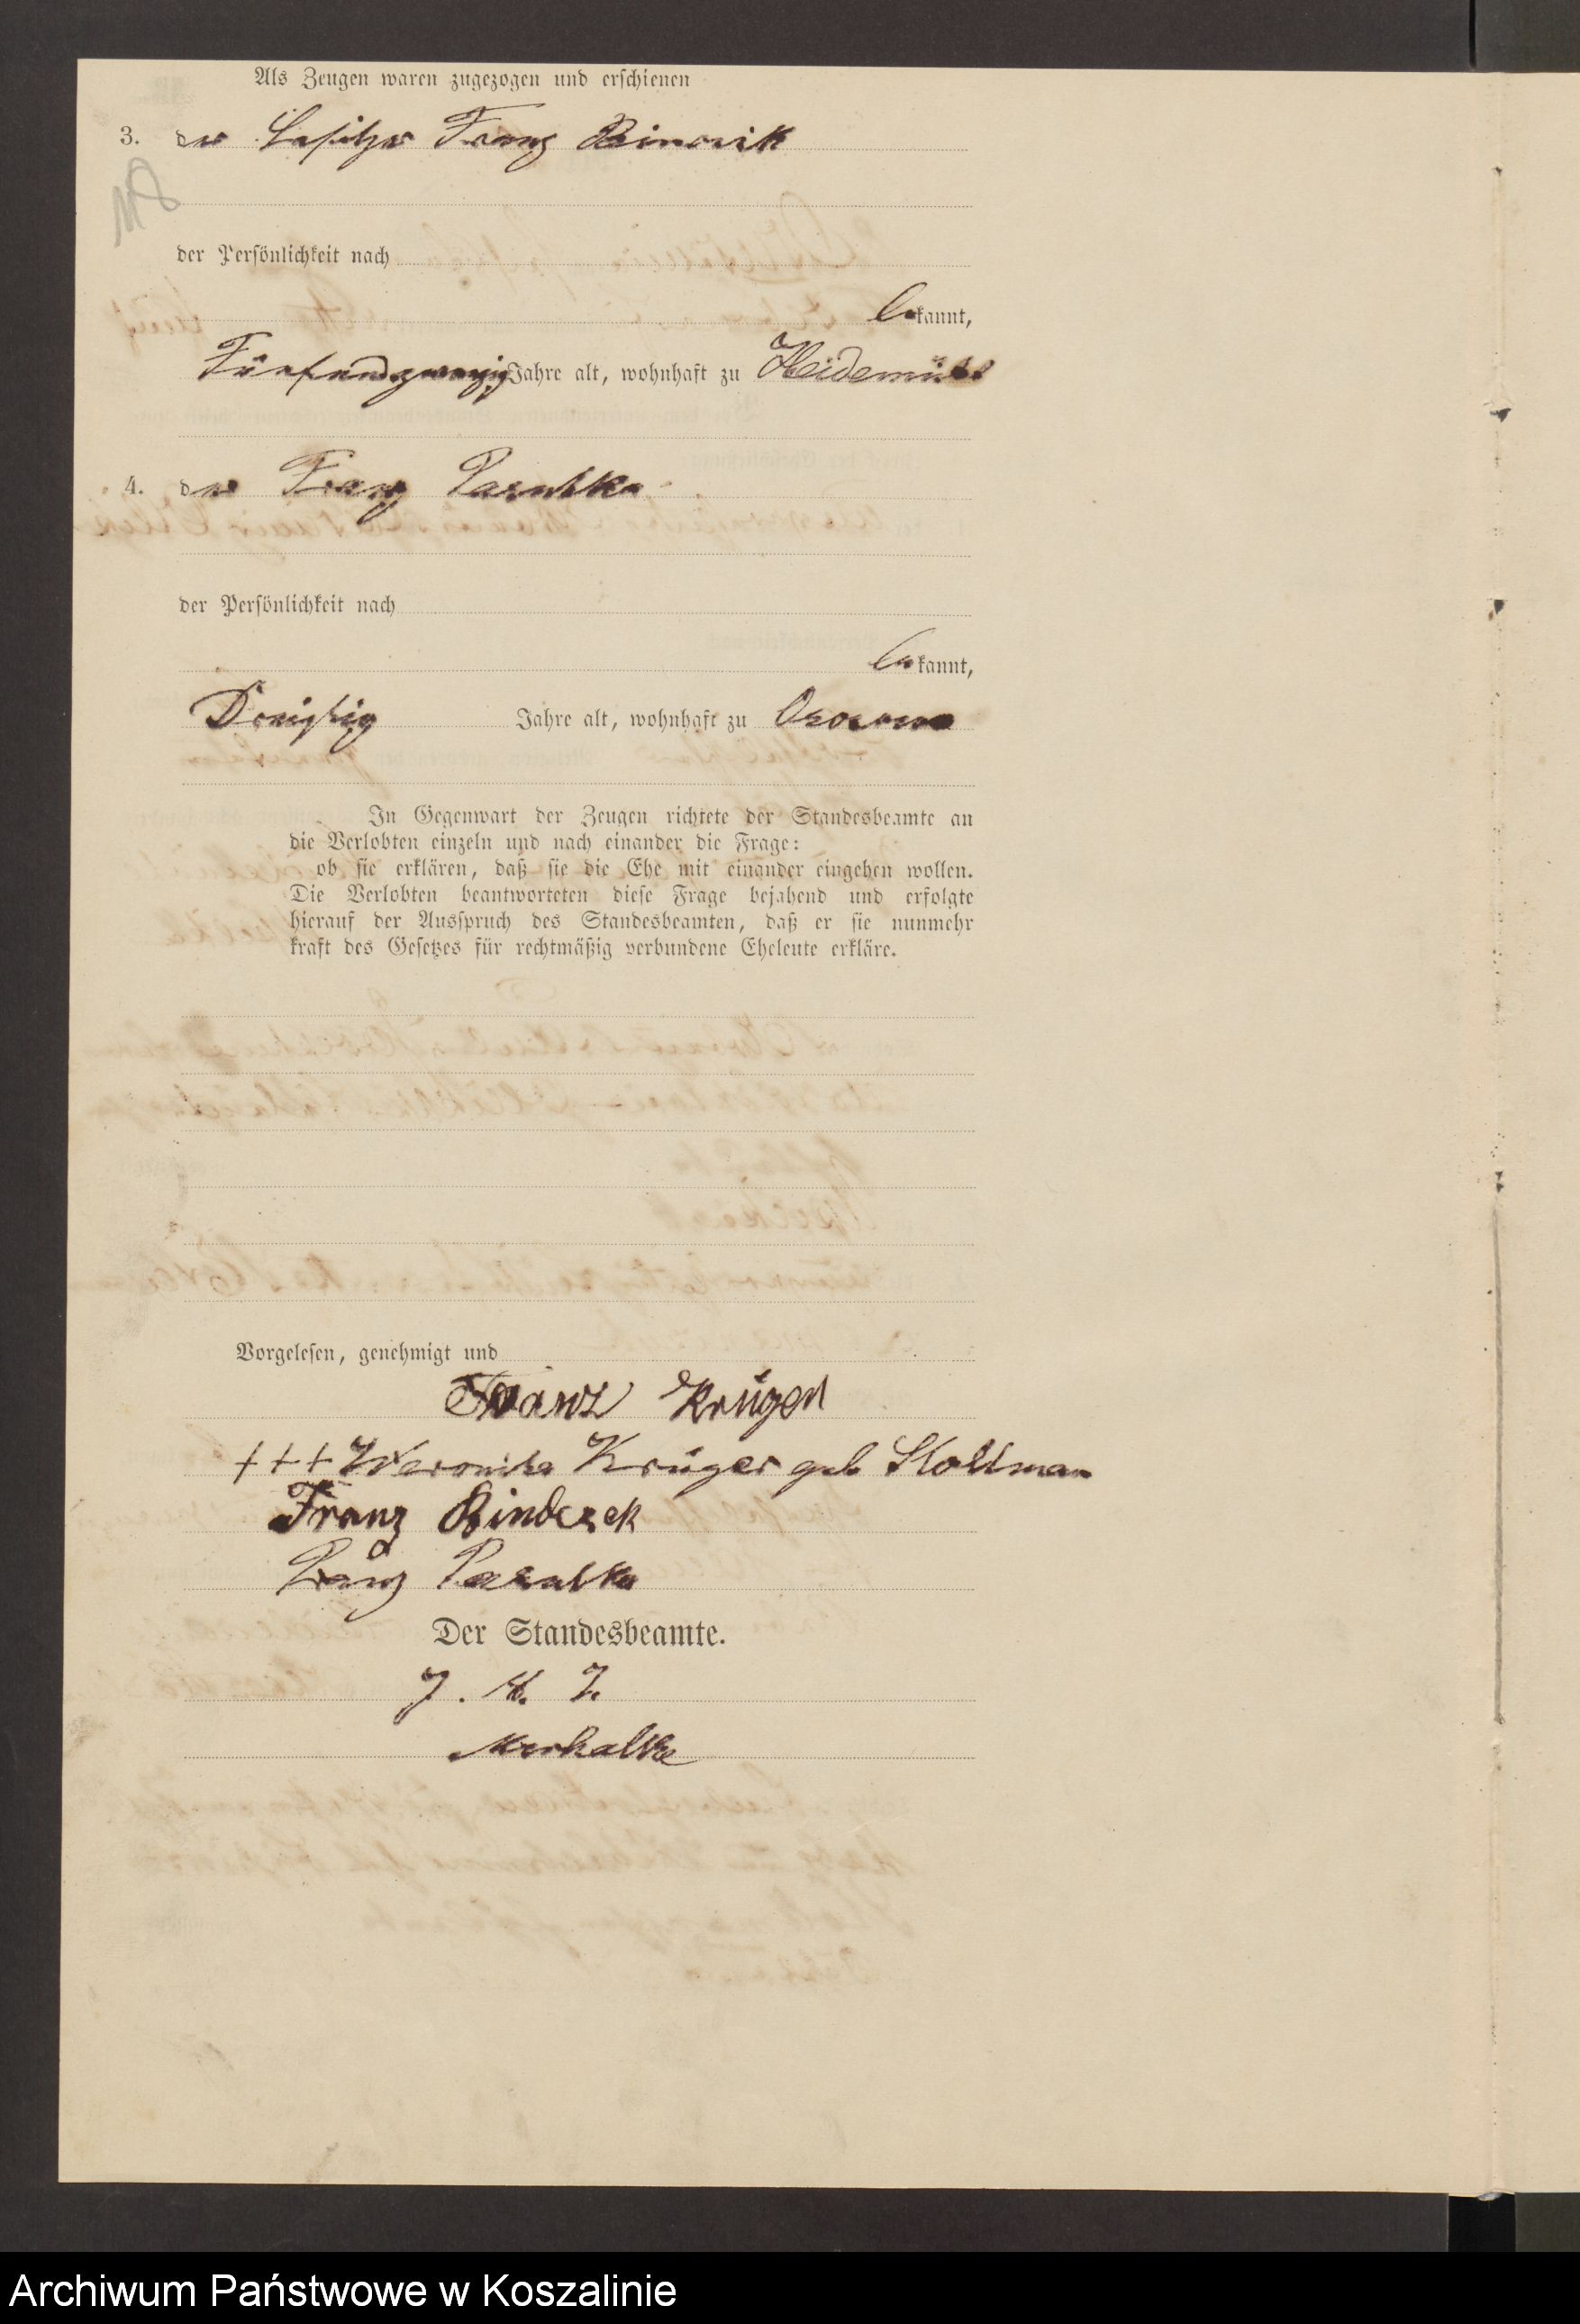 Als Zeugen waren zugezogen und erschienen
3. der Besitzer Franz
der Persönlichkeit nach
bekannt,
Fünfundzwanzig Jahre alt, wohnhaft zu Heidemühl
4. der Franz
der Persönlichkeit nach
bekannt,
Dreißig Jahre alt, wohnhaft zu
In Gegenwart der Zeugen richtete der Standesbeamte an
die Verlobten einzeln und nach einander die Frage:
ob sie erklären, daß sie die Ehe mit einander eingehen wollen.
Die Verlobten beantworteten diese Frage bejahend und erfolgte
hierauf der Ausspruch des Standesbeamten, daß er sie nunmehr
kraft des Gesetzes für rechtmäßig verbundene Eheleute erkläre.
Vorgelesen, genehmigt und
Franz Krüger
+++ Weronika Krüger geb
Franz
Franz
Der Standesbeamte.
Archiwum Państwowe w Koszalinie